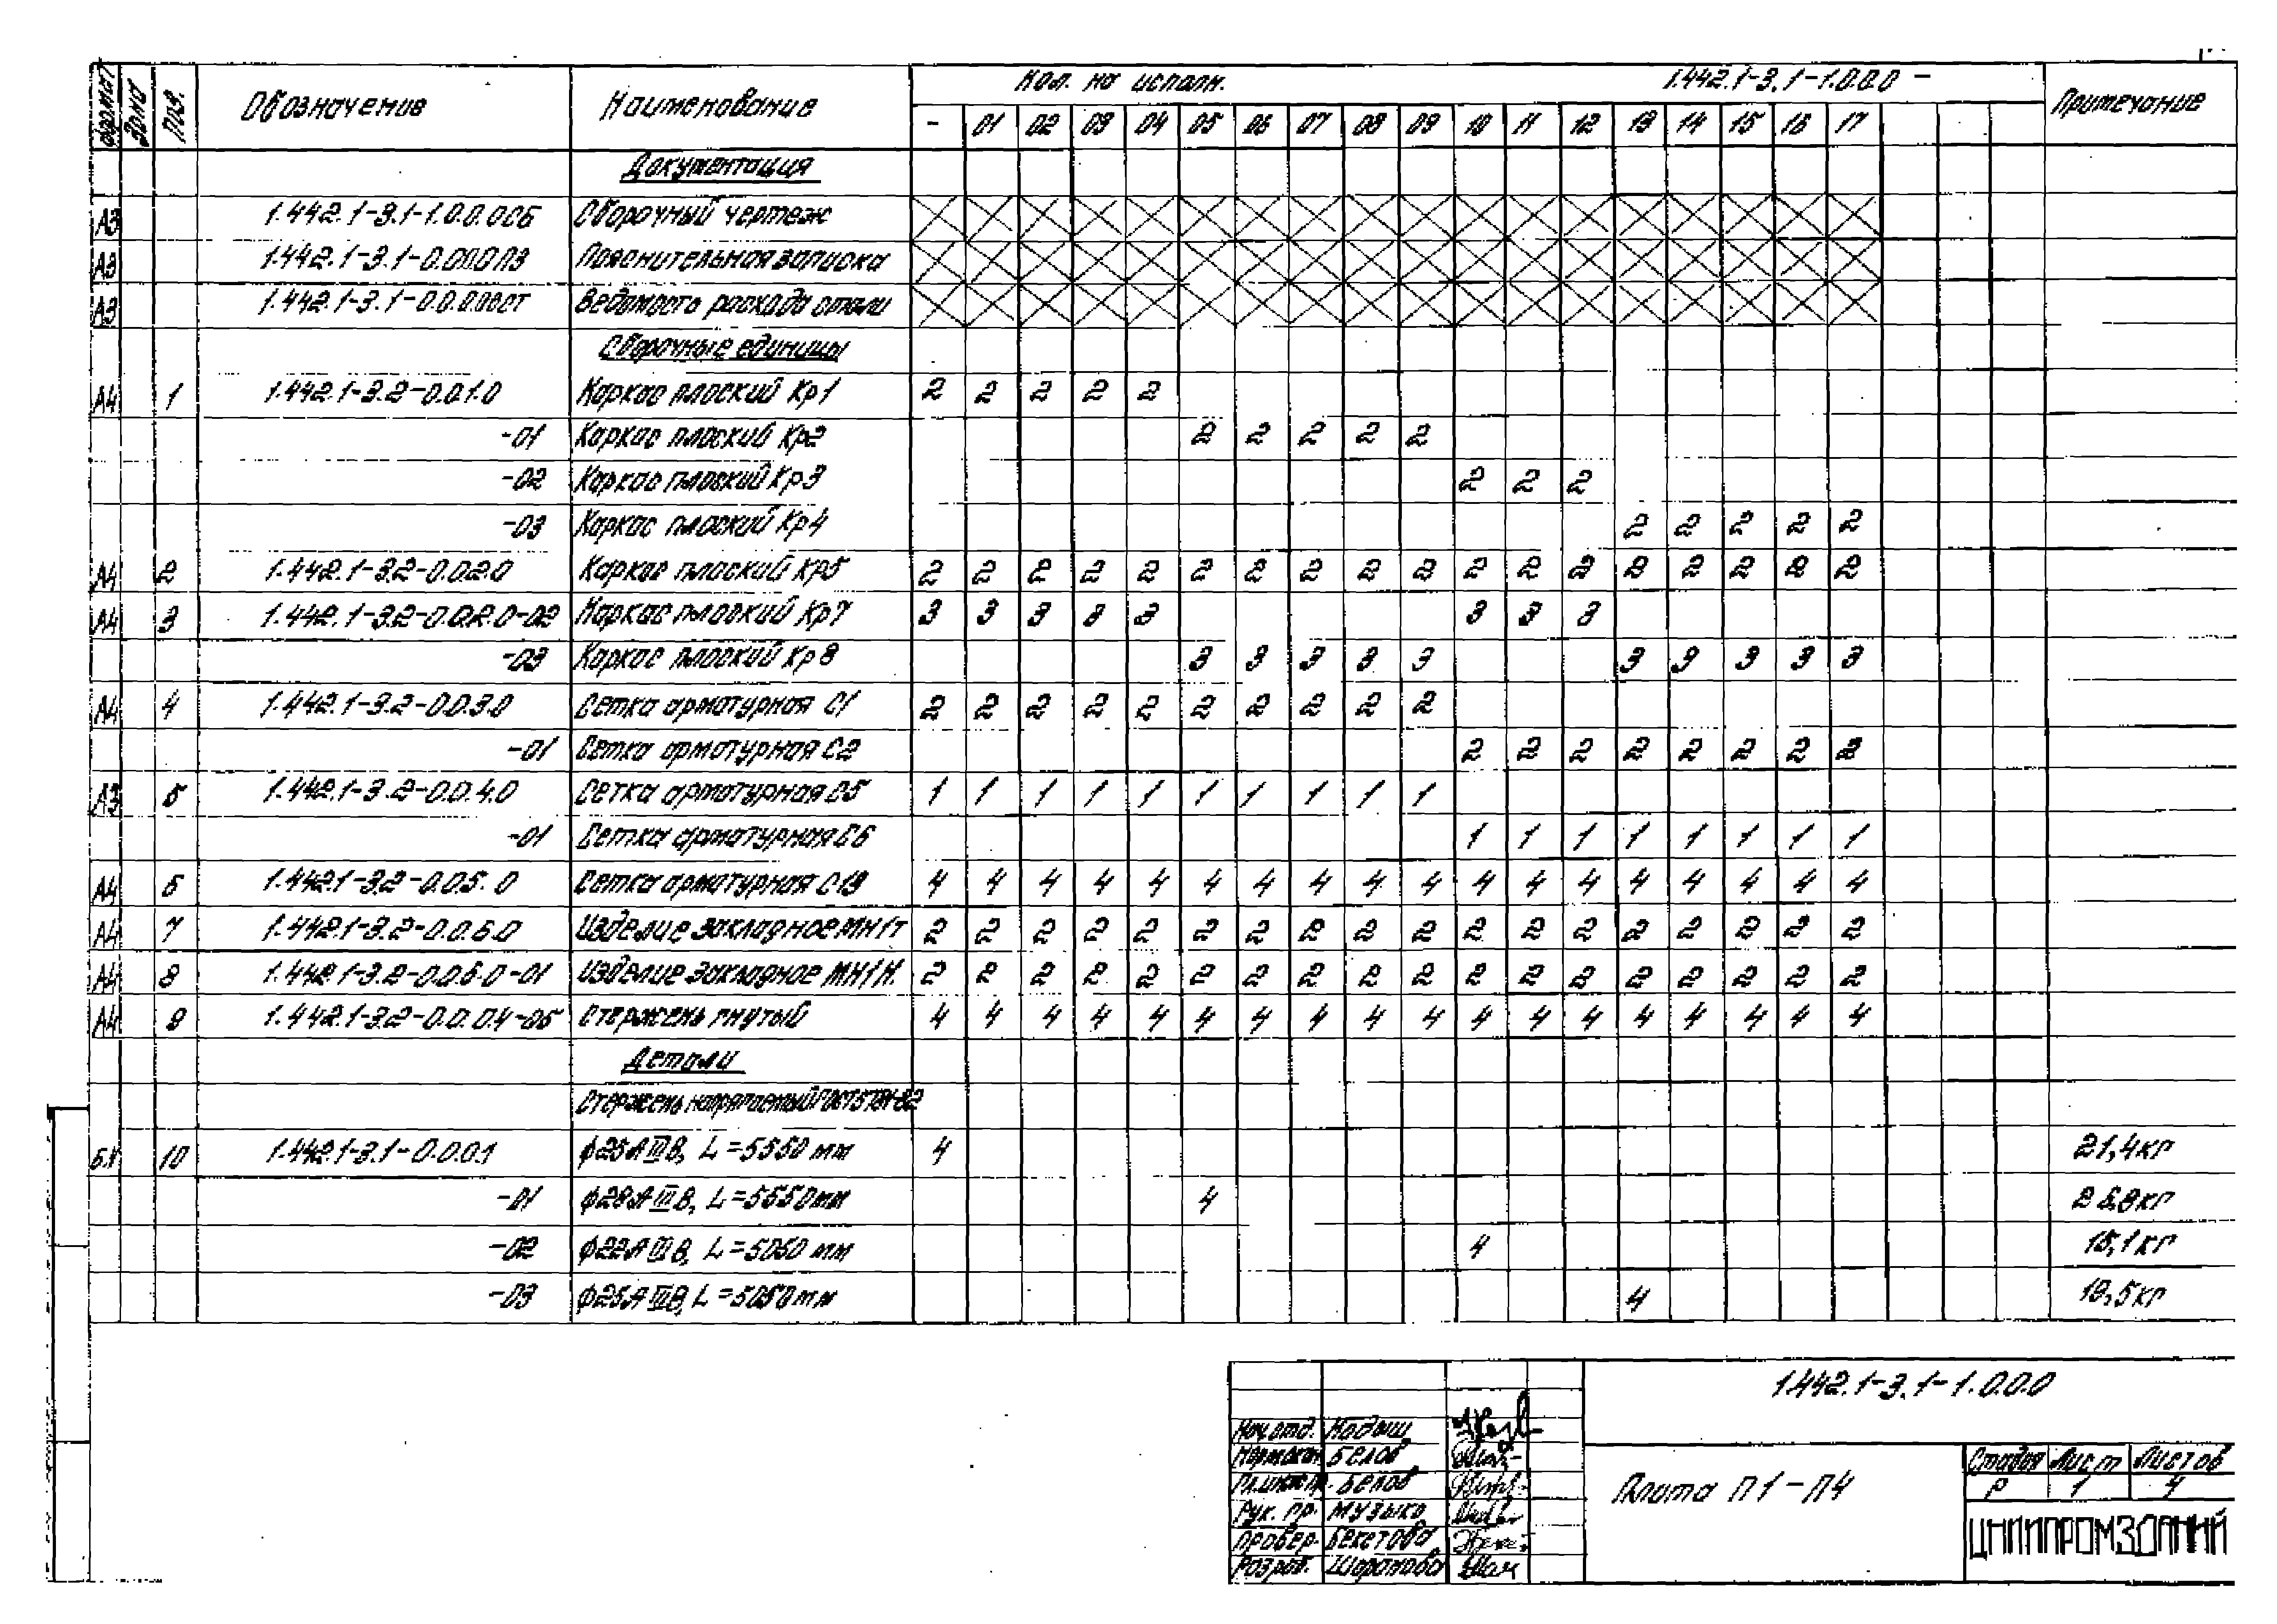 формат Зона Поз. Обозначение Наименование Кол. на исполн. 1.442.1-3.1-1.0.0.0 — Примечание
- 01 02 03 04 05 06 07 08 09 10 11 12 13 14 15 16 17
Документация
А3 1.442.1-3.1-1.0.0.0СБ Сборочный чертеж
А3 1.442.1-3.1-0.0.0.0ПЗ Пояснительная записка
А3 1.442.1-3.1-0.0.0.0ВСТ Ведомость расхода стали
Сборочные единицы
А4 1 1.442.1-3.2-0.0.1.0 Каркас плоский Кр1 2 2 2 2 2
-01 Каркас плоский Кр2 2 2 2 2 2
-02 Каркас плоский Кр3 2 2 2
-03 Каркас плоский Кр4 2 2 2 2 2
А4 2 1.442.1-3.2-0.0.2.0 Каркас плоский Кр5 2 2 2 2 2 2 2 2 2 2 2 2 2 2 2 2 2 2
А4 3 1.442.1-3.2-0.0.2.0-02 Каркас плоский Кр7 3 3 3 3 3 3 3 3
-03 Каркас плоский Кр8 3 3 3 3 3 3 3 3 3 3
А4 4 1.442.1-3.2-0.0.3.0 Сетка арматурная С1 2 2 2 2 2 2 2 2 2 2
-01 Сетка арматурная С2 2 2 2 2 2 2 2 2
А3 5 1.442.1-3.2-0.0.4.0 Сетка арматурная С5 1 1 1 1 1 1 1 1 1 1
-01 Сетка арматурная С6 1 1 1 1 1 1 1 1
А4 6 1.442.1-3.2-0.0.5.0 Сетка арматурная С13 4 4 4 4 4 4 4 4 4 4 4 4 4 4 4 4 4 4
А4 7 1.442.1-3.2-0.0.6.0 Изделие закладное МН1т 2 2 2 2 2 2 2 2 2 2 2 2 2 2 2 2 2 2
А4 8 1.442.1-3.2-0.0.6.0-01 Изделие закладное МН1Н 2 2 2 2 2 2 2 2 2 2 2 2 2 2 2 2 2 2
А4 9 1.442.1-3.2-0.0.0.4-05 Стержень гнутый 4 4 4 4 4 4 4 4 4 4 4 4 4 4 4 4 4 4
Детали
Стержень напрягаемый ГОСТ 5781-82
Б.Ч 10 1.442.1-3.1-0.0.0.1 ф25АIIIВ, L=5550 мм 4 21,4кг
-01 ф28АIIIВ, L=5550мм 4 26,8кг
-02 ф22АIIIВ, L=5050 мм 4 15,1кг
-03 ф25АIIIВ, L=5050мм 4 19,5кг
1.442.1-3.1-1.0.0.0
Нач.отд. Кодыш
Нормокон. Белов
Гл.инж.пр. Белов
Рук. пр. Музыко
Провер. Бекетова
Разраб. Шарапова
Плита П1-П4
Стадия Лист Листов
Р 1 4
ЦНИИПРОМЗДАНИЙ